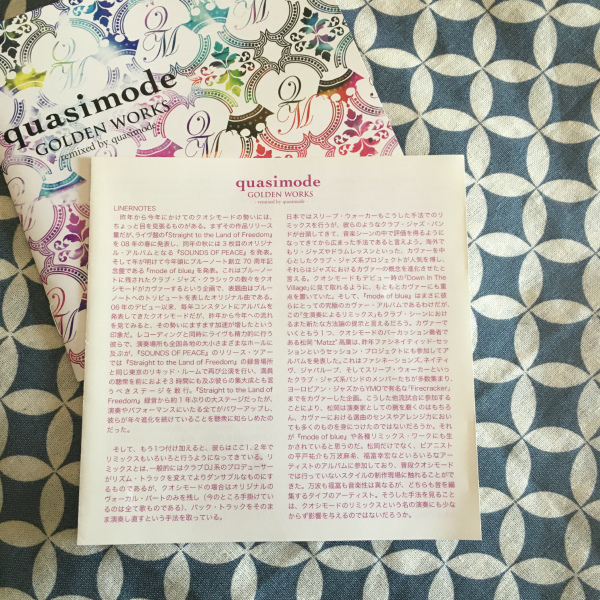 quasimode
GOLDEN WORKS
remixed by quasimode
quasimode
GOLDEN WORKS
- remixed by quasimode -
LINERNOTES
昨年から今年にかけてのクオシモードの勢いには、
ちょっと目を見張るものがある。まずその作品リリース
量だが、ライヴ盤の『Straight to the Land of Freedom』
を 08 年の春に発表し、同年の秋には 3 枚目のオリジナ
ル・アルバムとなる『SOUNDS OF PEACE』を発表。
そして年が明けて今年頭にブルーノート創立 70 周年記
念盤である『mode of blue』を発表。これはブルーノー
トに残されたクラブ・ジャズ・クラシックの数々をクオ
シモードがカヴァーするという企画で、表題曲はブルー
ノートへのトリビュートを表したオリジナル曲である。
06 年のデビュー以来、毎年コンスタントにアルバムを
発表してきたクオシモードだが、昨年から今年への流れ
を見てみると、その勢いにますます加速が増したという
印象だ。レコーディングと同時にライヴも精力的に行う
彼らで、演奏場所も全国各地の大小さまざまなホールに
及ぶが、『SOUNDS OF PEACE』のリリース・ツアー
では『Straight to the Land of Freedom』の録音場所
と同じ東京のリキッド・ルームで再び公演を行い、満員
の聴衆を前におよそ 3 時間にも及ぶ彼らの集大成とも言
うべきステージを敢行。『Straight to the Land of
Freedom』録音から約 1 年ぶりの大ステージだったが、
演奏やパフォーマンスにいたる全てがパワーアップし、
彼らが年々進化を続けていることを聴衆に知らしめたの
だった。
そして、もう1つ付け加えると、彼らはここ1, 2 年で
リミックスもいろいろと行うようになってきている。リ
ミックスとは、一般的にはクラブ DJ 系のプロデューサー
がリズム・トラックを変えてよりダンサブルなものにす
るものであるが、クオシモードの場合はオリジナルの
ヴォーカル・パートのみを残し（今のところ手掛けてい
るのは全て歌もの である）、バック・トラックをそのま
ま演奏し直すという手法を取っている。
日本ではスリープ・ウォーカーもこうした手法でのリ
ミックスを行うが、彼らのようなクラブ・ジャズ・バン
ドが台頭してきて、音楽シーンの中で評価を得るように
なってきてから広まった手法であると言えよう。海外で
もリ・ジャズやドラムレッスンといった、カヴァーを中
心としたクラブ・ジャズ系プロジェクトが人気を博し、
それらはジャズにおけるカヴァーの概念を進化させたと
言える。クオシモードもデビュー時の「Down In The
Village」に見て取れるように、もともとカヴァーにも重
点を置いていた。そして、『mode of blue』はまさに彼
らにとっての究極のカヴァー・アルバムであるわけだが、
この"生演奏によるリミックス"もクラブ・シーンにおけ
るまた新たな方法論の提示と言えるだろう。カヴァーで
いくともう 1 つ、クオシモードのパーカッション奏者で
ある松岡 "Matzz" 高廣は、昨年ファンネイティッド・セッ
ションというセッション・プロジェクトにも参加してア
ルバムを発表した。これはファンキーズネス、ネイティ
ヴ、ジャバループ、そしてスリープ・ウォーカーといっ
たクラブ・ジャズ系バンドのメンバーたちが多数集まり、
ヨーロピアン・ジャズから YMO で有名な「Firecracker」
までをカヴァーした企画。こうした他流試合に参加する
ことにより、松岡は演奏家としての腕を磨くのはもちろ
ん、カヴァーにおける選曲のセンスやアレンジ力におい
ても多くのものを身につけたのではないだろうか。それ
が『mode of blue』や各種リミックス・ワークにも生
かされていると思うのだ。松岡だけでなく、ピアニスト
の平戸祐介も万波麻希、福富幸宏などいろいろなアー
ティストのアルバムに参加しており、普段クオシモード
では行っていないスタイルの制作現場に触れることがで
きた。万波も福富も音楽性は異なるが、どちらも音を編
集するタイプのアーティスト。そうした手法を見ること
は、クオシモードのリミックスという名の演奏にも少な
からず影響を与えるのではないだろうか。